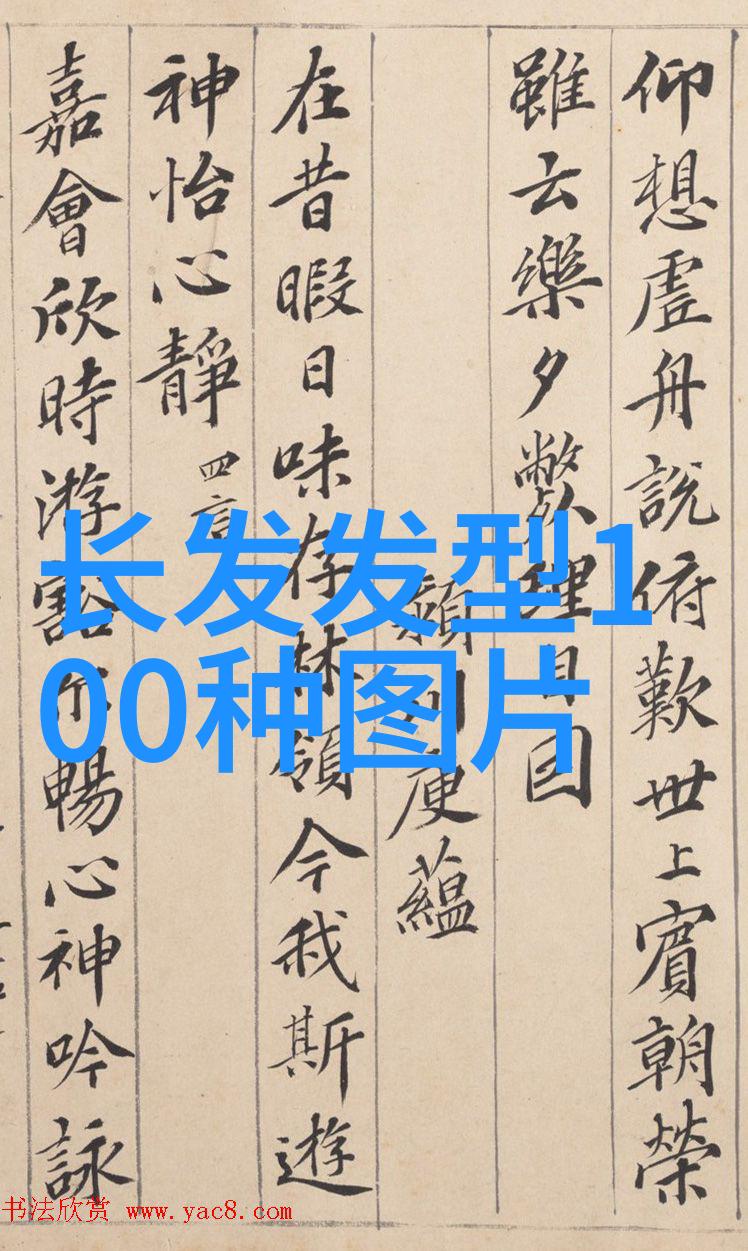 仰想虛舟說俯歎世上賓朝榮
雖云樂夕斃理自因
潁川庾蘊
在昔暇日味存林嶺今我斯遊
神怡心靜 四言
嘉會欣時游豁尓暢心神吟詠
长发发型1
00种图片
书法欣赏 www.yac8.com